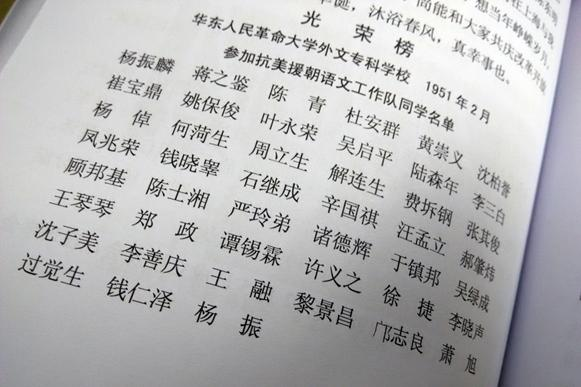 想当年峥嵘岁月，
尚能和大家共庆改革开放
诞，沐浴春风，真幸事也。
光荣榜
华东人民革命大学外文专科学校 1951年2月
参加抗美援朝语文工作队同学名单
杨振麟 蒋之鉴 陈青 杜安群 黄崇义 沈柏誉
崔宝鼎 姚保俊 叶永荣 吴启平 陆森年 李三白
杨倬 何菏生 周立生 解连生 费坼钢 张其俊
凤兆荣 钱晓睾 石继成 辛国祺 汪孟立 郝肇炜
顾邦基 陈士湘 严玲弟 诸德辉 于镇邦 吴绿成
王琴琴 郑政 谭锡霖 许义之 徐捷 李晓声
沈子美 李善庆 王融 黎景昌 邝志良 萧旭
过觉生 钱仁泽 杨振